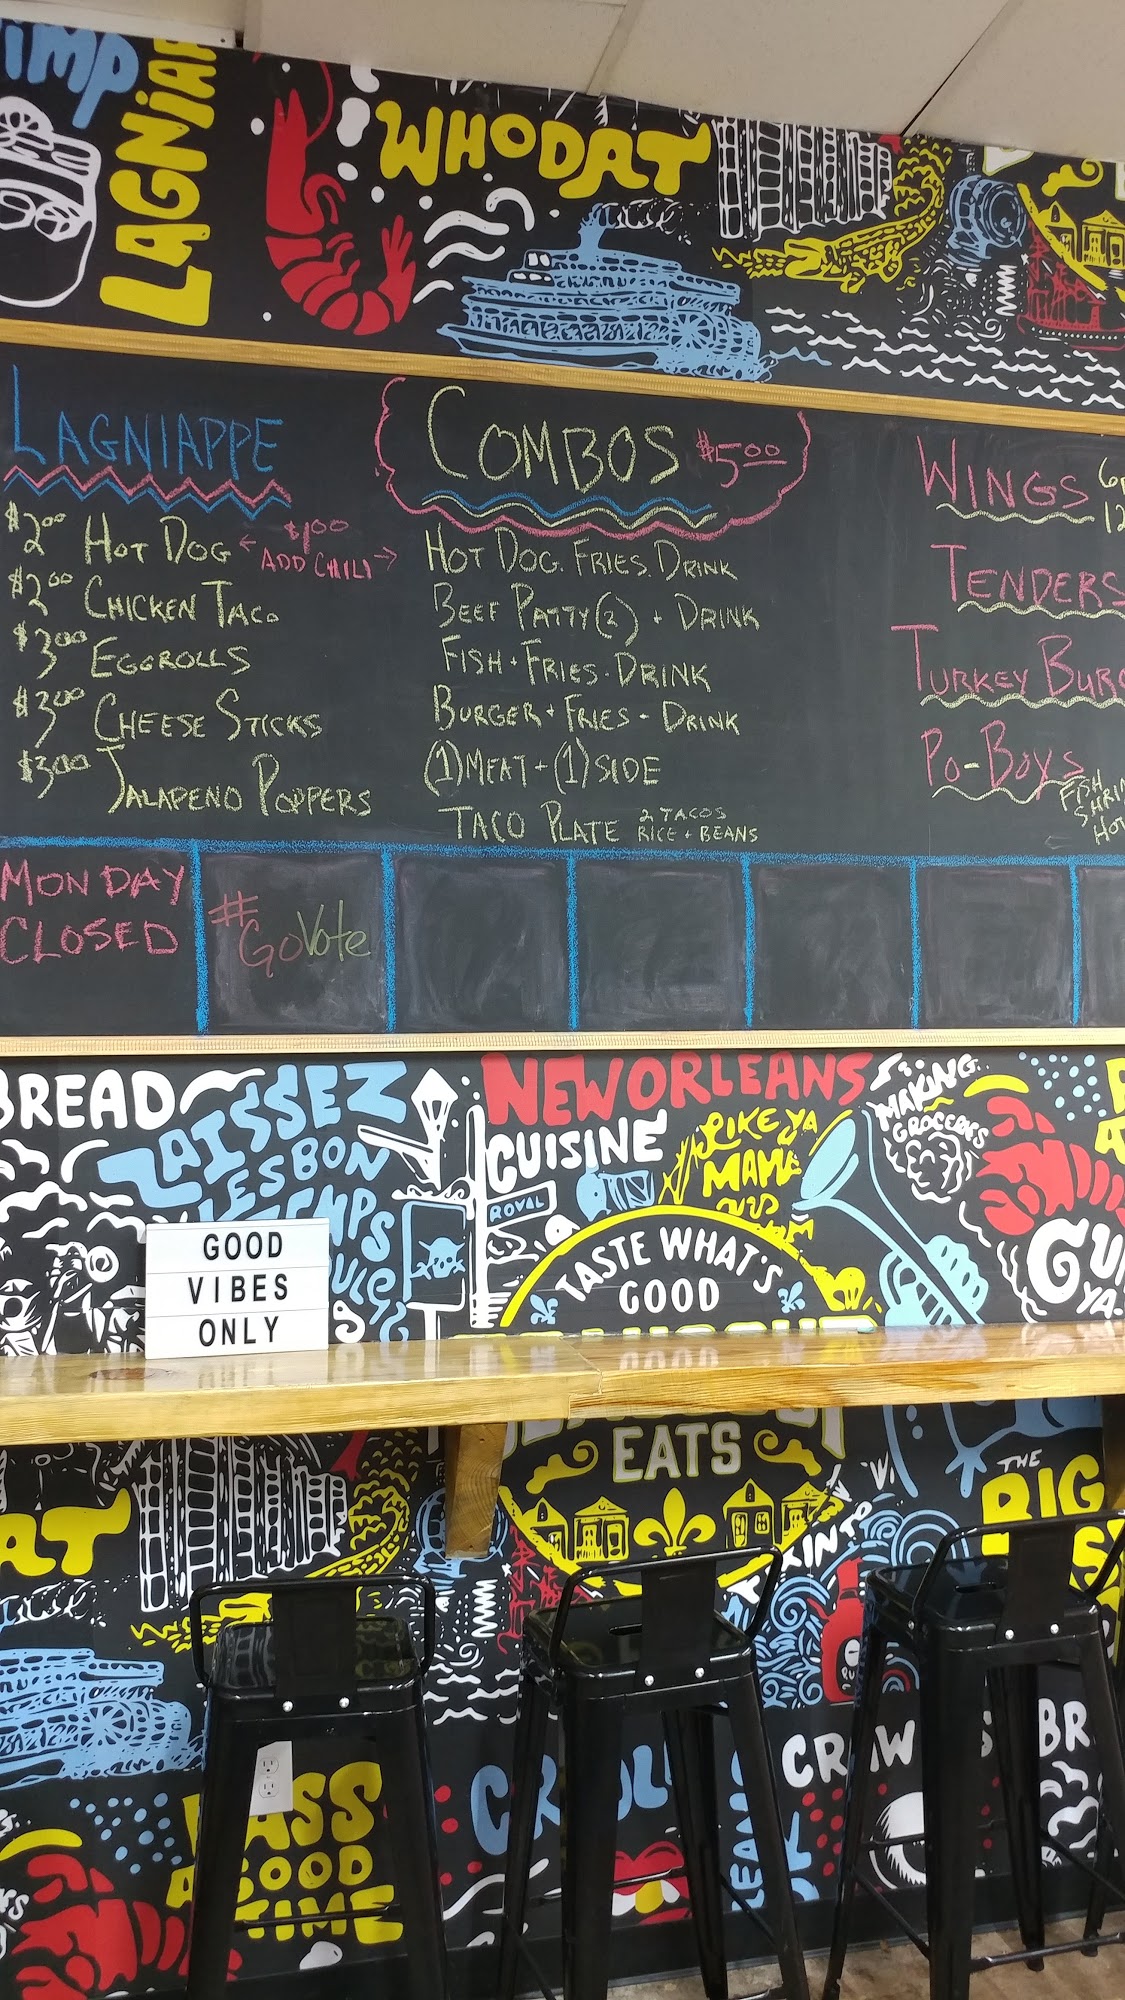 LAGNiAP
WHODAT
LAGNIAPPE
$2.00 HOT DOG
$1.00
ADD CHILI
$2.00 CHICKEN TACO
$3.00 EGGROLLS
$3.00 CHEESE STICKS
$3.00 JALAPENO POPPERS
COMBOS $5.00
HOT DOG. FRIES. DRINK
BEEF PATTY (2) + DRINK
FISH · FRIES · DRINK
BURGER + FRIES - DRINK
(1) MEAT + (1) SIDE
TACO PLATE 2 TACOS
RICE + BEANS
WINGS
TENDERS
TURKEY BURG
PO-BOYS
FISH
MONDAY
CLOSED
#GoVote
BREAD
LAISSEZ
LESBON
NEWORLEANS
CUISINE
ROYAL
LIKE YA
MAMA
MAKING
GROCERIES
TASTE WHAT'S
GOOD
GOOD
VIBES
ONLY
EATS
THE
BIG
GOOD
TIME